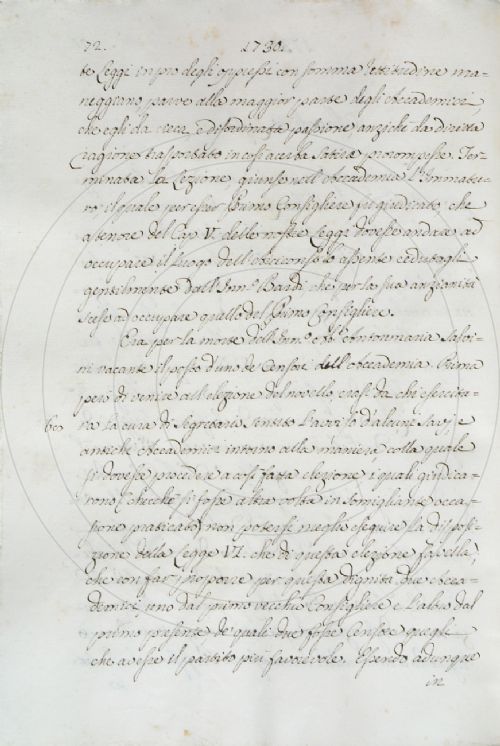 72. 1730.
te Leggi in pro degli oppressi con somma rettitudine ma-
neggiano parve alla maggior parte degli Accademici,
che egli da cieca, e disordinata passione anziché da diritta
ragione trasportato in così acerba Satira prorompesse. Ter-
minata la Lezione giunse nell'Accademia l'Immatu-
ro, il quale per esser Primo Consigliere fu giudicato che
a tenore del Cap. VI. delle nostre Leggi dovesse andare ad
occupare il luogo dell'Arciconsolo assente cedutogli
gentilmente dall'Inn.o Bardi, che per la sua anzianità
scese ad occupare quello del Primo Consigliere.
Era per la morte dell'Inn.o Ab.e Antonmaria Salvi-
ni vacante il posto d'uno de Censori dell'Accademia. Prima
però di venire all'elezione del novello, erasi da chi esercita-
60 va la cura di Segretario sentito l'avviso d'alcuni savj, e
antichi Accademici intorno alla maniera colla quale
si dovesse procedere a così fatta elezione, i quali giudica-
rono (checchè si fosse altra volta in somigliante occa-
sione praticato) non potersi meglio eseguire la disposi-
zione della Legge VII. che di questa elezione favella,
che con far proporre per questa dignità due Acca-
demici, uno dal primo vecchio Consigliere e l'altro dal
primo presente de quali due fosse Censore quegli
che avesse il partito più favorevole. Essendo adunque
in